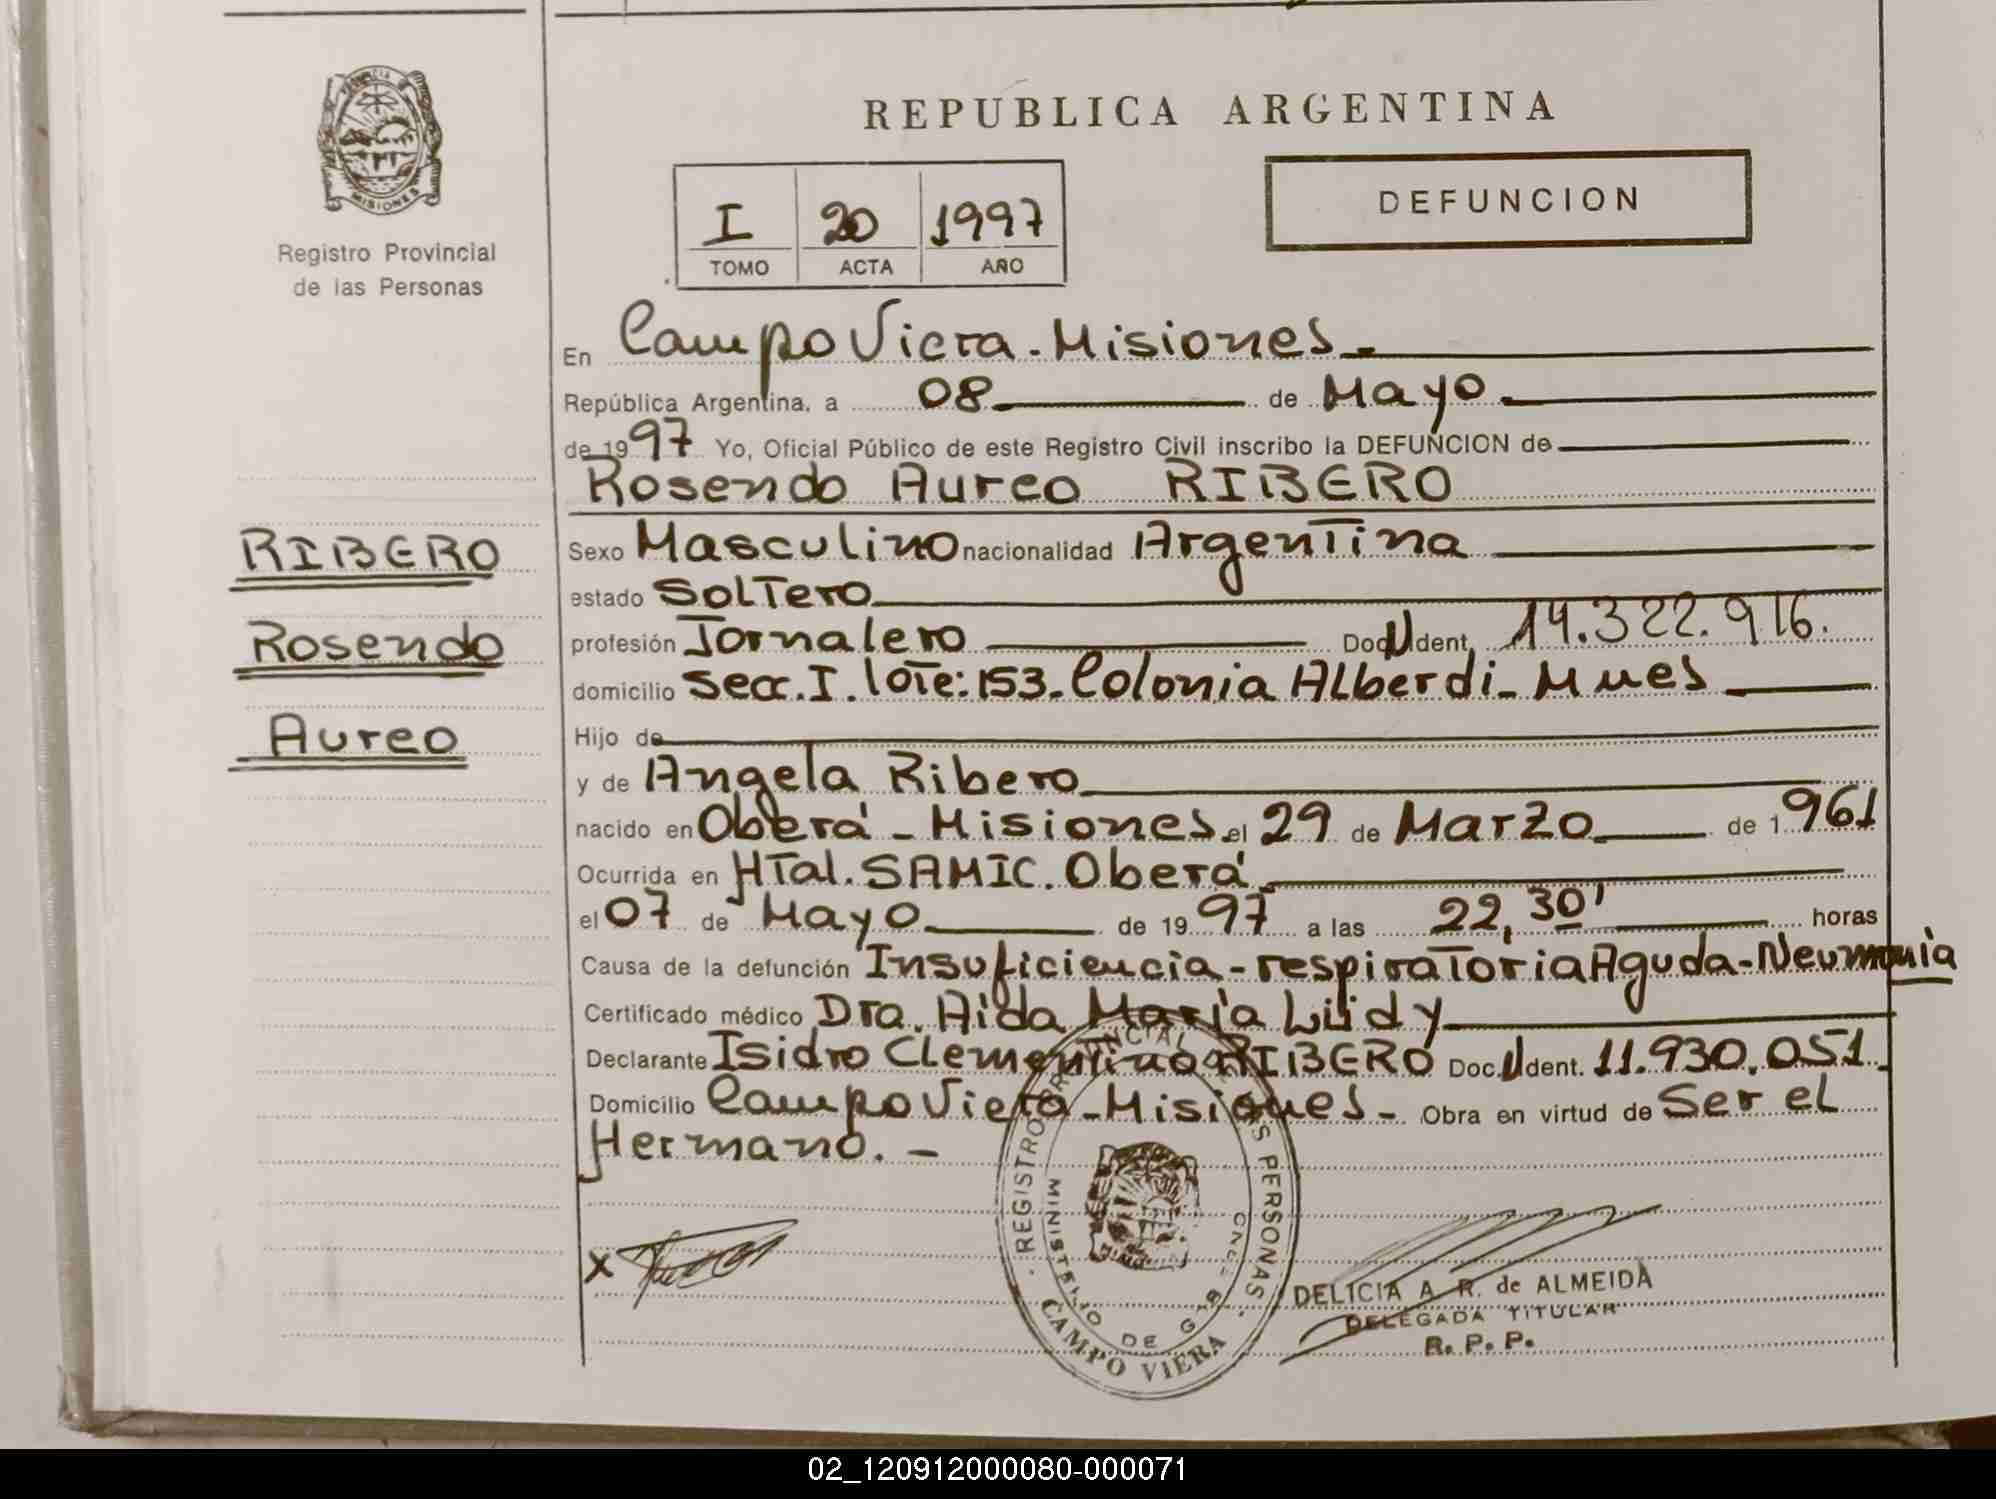 REPUBLICA ARGENTINA
MISIONES
Registro Provincial
de las Personas
I 20 1997
TOMO ACTA AÑO
DEFUNCION
En Campo Viera - Misiones.
República Argentina, a 08 de Mayo
de 1997 Yo, Oficial Público de este Registro Civil inscribo la DEFUNCION de
Rosendo Aureo RIBERO
RIBERO
Rosendo
Aureo
Sexo Masculino nacionalidad Argentina
estado Soltero
profesión Jornalero Doc. Ident. 14.322.916.
domicilio Secc. I. lote: 153. Colonia Alberdi - Mnes
Hijo de
y de Angela Ribero
nacido en Oberá - Misiones el 29 de Marzo de 1961
Ocurrida en HTal. SAMIC. Oberá
el 07 de Mayo de 1997 a las 22,30' horas
Causa de la defunción Insuficiencia - respiratoria Aguda - Neumonía
Certificado médico Dra. Aida María Lüdy
Declarante Isidro Clementino RIBERO Doc. Ident. 11.930.051
Domicilio Campo Viera - Misiones - Obra en virtud de Ser el
Hermano. -
X
REGISTRO PROVINCIAL DE LAS PERSONAS
MINISTERIO DE GOB
CAMPO VIERA
DELICIA A. R. de ALMEIDA
DELEGADA TITULAR
R. P. P.
02_120912000080-000071